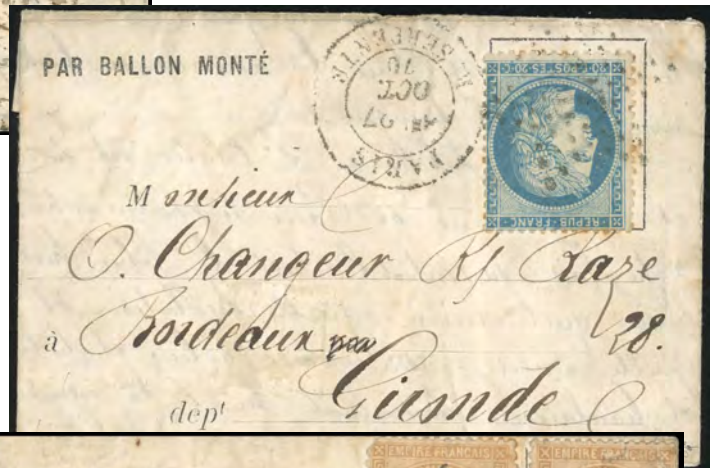 PAR BALLON MONTÉ
PARIS R. SERPENTE
27
OCT.
70
20·C·POSTES·20·C
REPUB·FRANC·
Monsieur
O. Changeur Raze
à Bordeaux 28.
dépt Gironde
EMPIRE FRANCAIS EMPIRE FRANCAIS